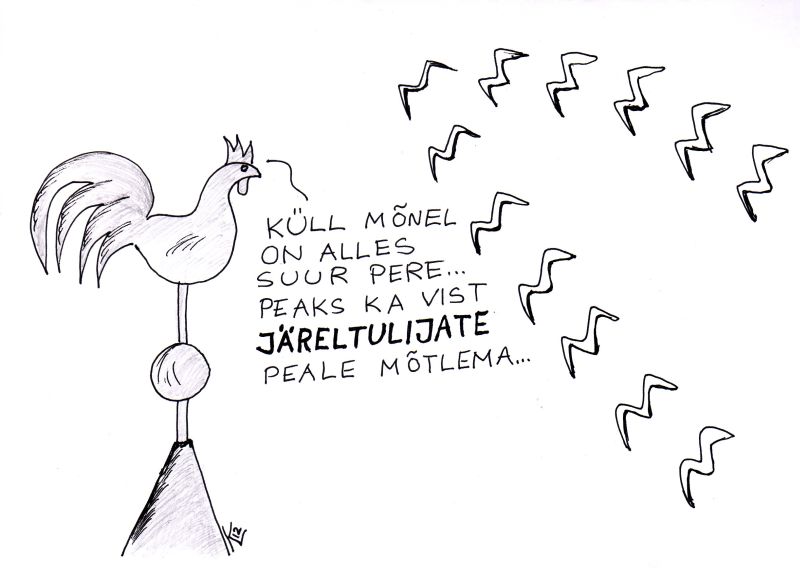 KÜLL MÕNEL
ON ALLES
SUUR PERE...
PEAKS KA VIST
JÄRELTULIJATE
PEALE MÕTLEMA...